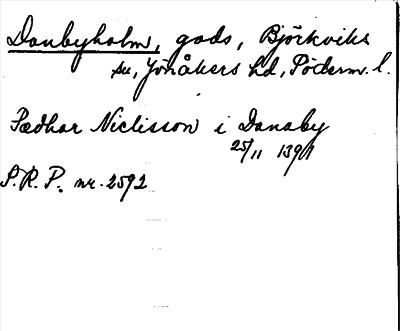 Danbyholm, gods, Björkviks
su, Jönåkers hd, Söderm. l.
Pædhar Niclisson i Danaby
25/11 1391
S.R.P. nr. 2592